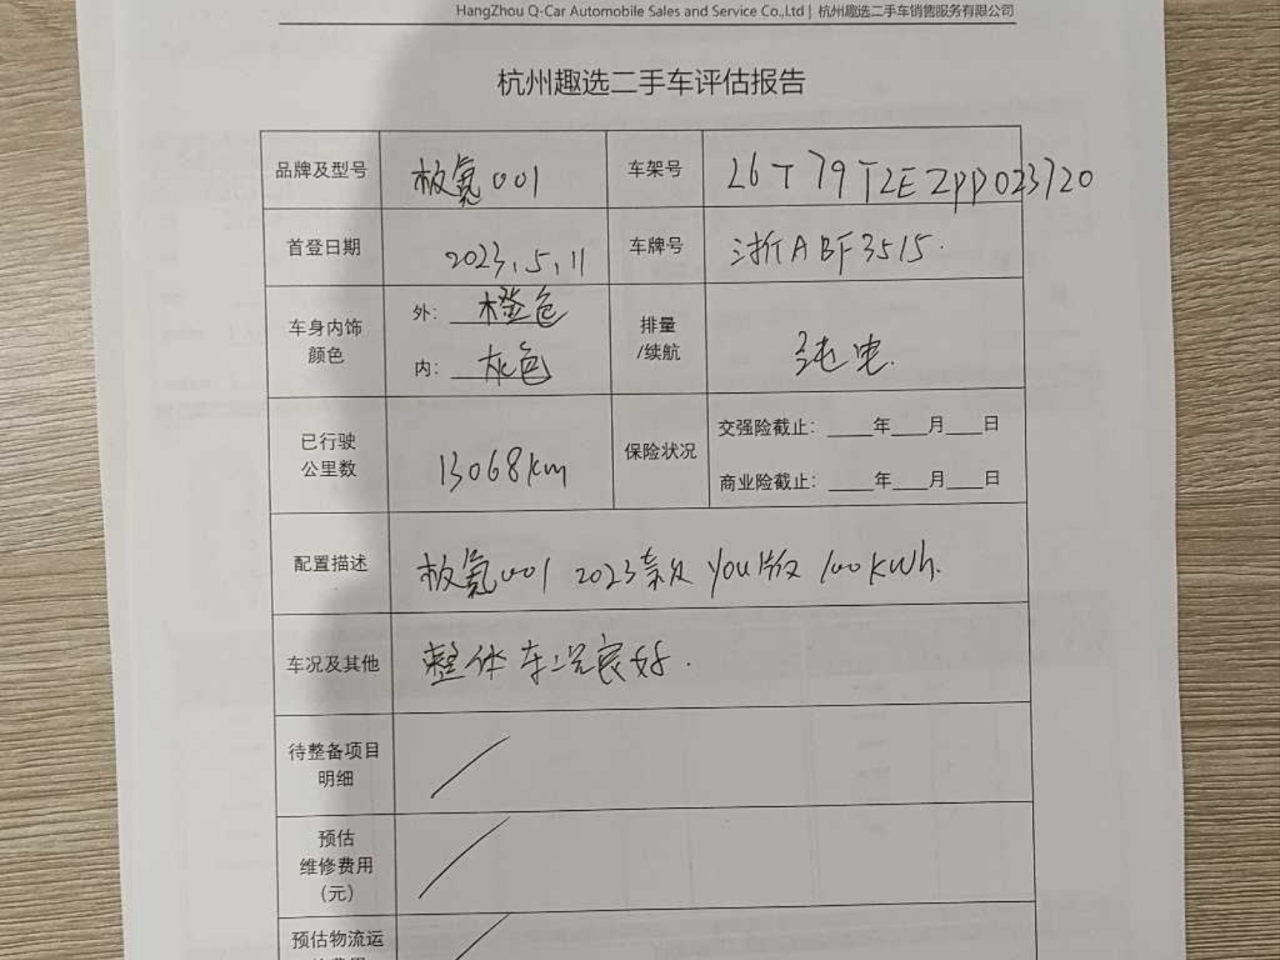 HangZhou Q-Car Automobile Sales and Service Co.,Ltd | 杭州趣选二手车销售服务有限公司
杭州趣选二手车评估报告
品牌及型号 极氪001 车架号 L6T79T2EZPP023720
首登日期 2023.5.11 车牌号 浙ABF3515.
车身内饰
颜色
外: 橙色
内: 灰色
排量
/续航
纯电.
已行驶
公里数
13068km
保险状况
交强险截止: ____年___月___日
商业险截止: ____年___月___日
配置描述 极氪001 2023款 YOU版 100kWh.
车况及其他 整体车况良好.
待整备项目
明细
预估
维修费用
(元)
预估物流运